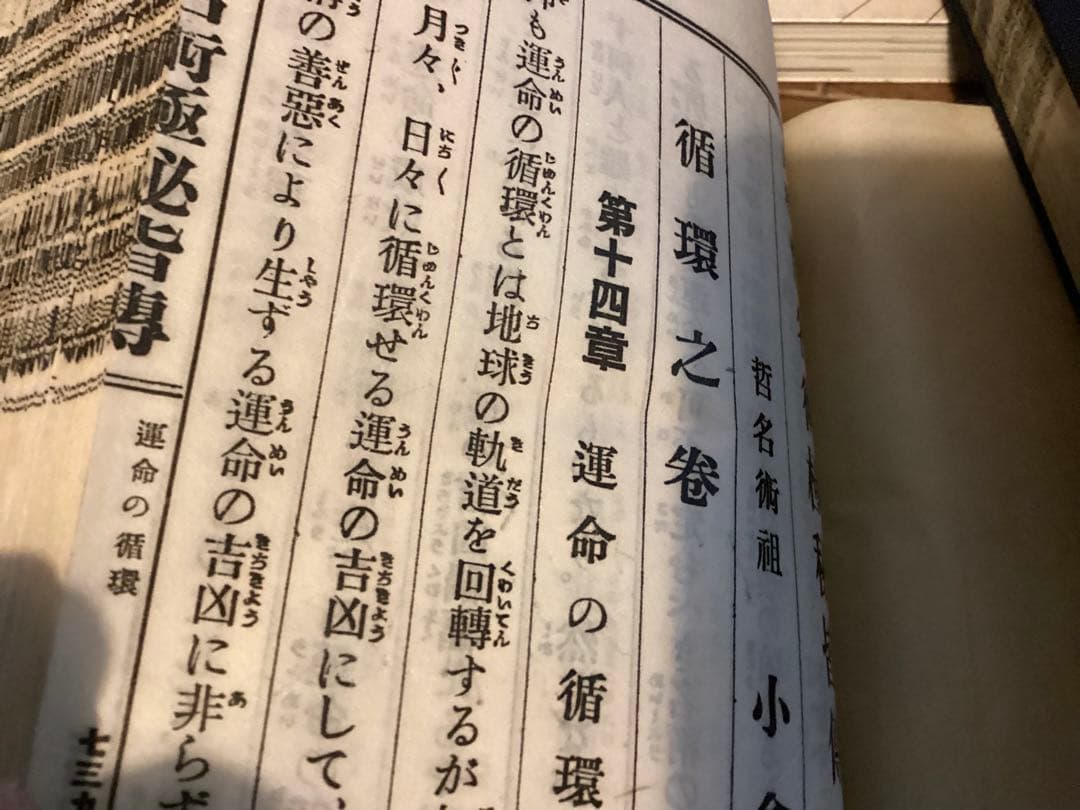 哲名術祖 小
循環之卷
第十四章 運命の循環
も運命の循環とは地球の軌道を回轉するが
月々、日々に循環せる運命の吉凶にして、
の善惡により生ずる運命の吉凶に非らず
術極必旨傳
運命の循環
七三